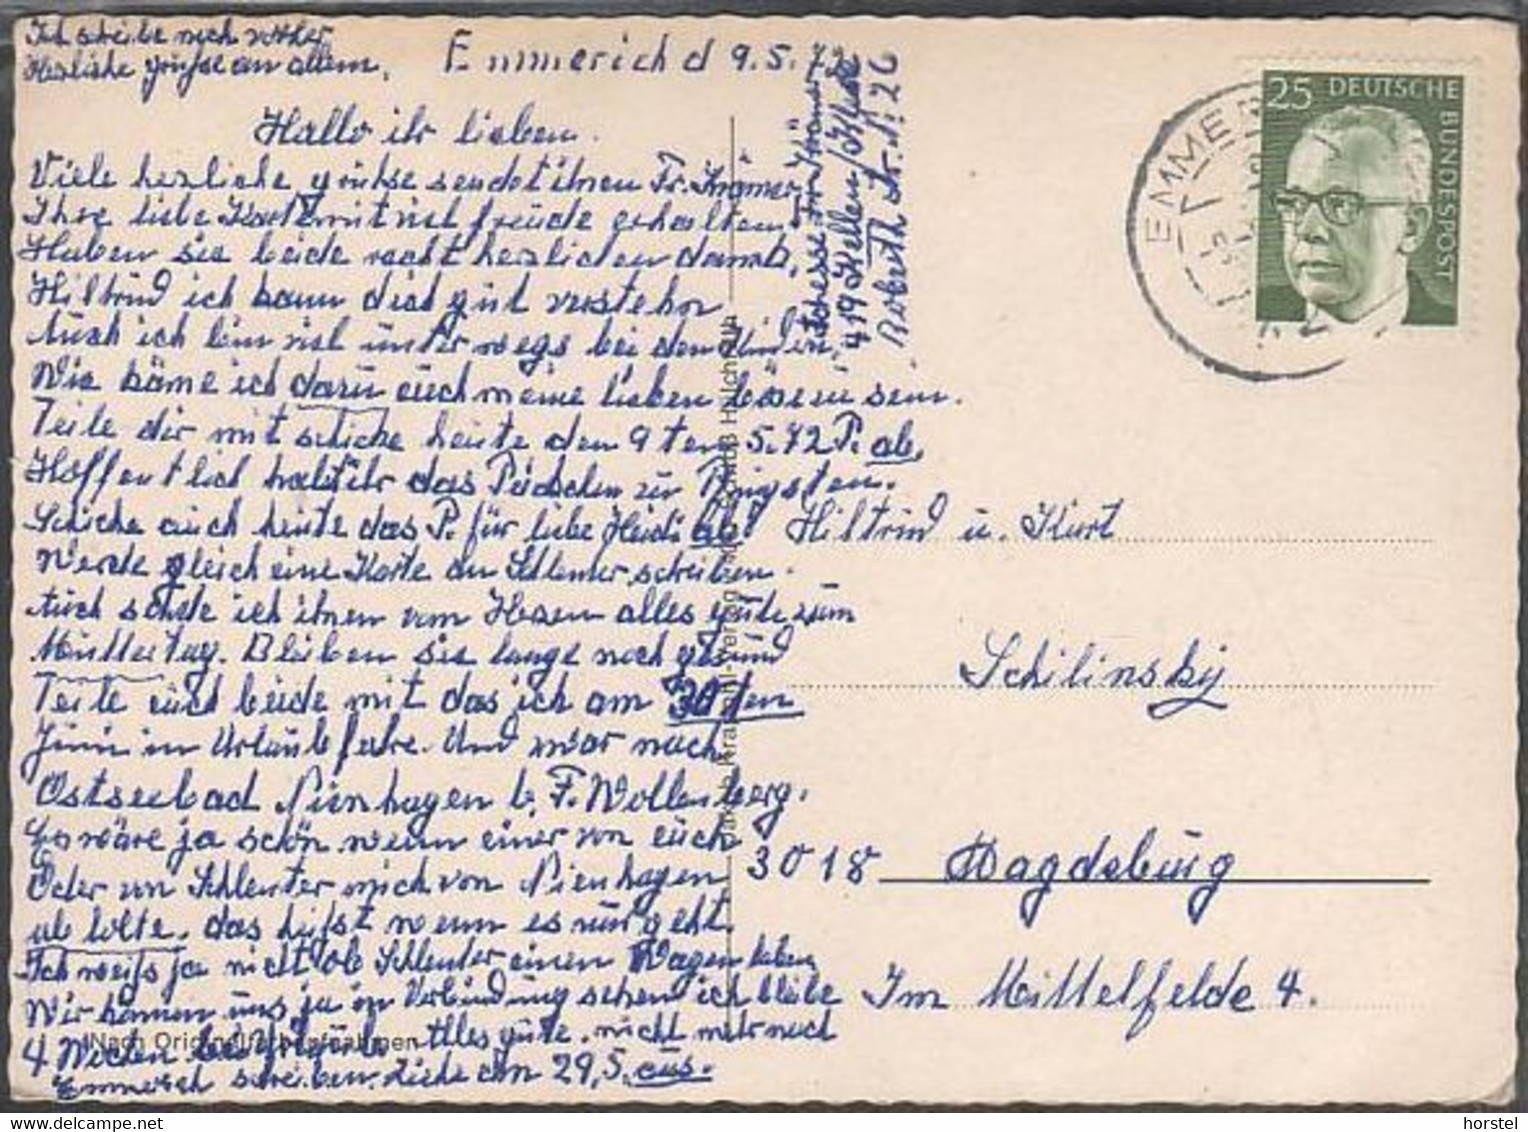 Ich schreibe noch vorher
Herzliche grüße an allem,
Emmerich d 9.5.72
Hallo ihr lieben.
Viele herzliche grüße sendet ihnen Fr. Krämer,
Ihre liebe Karte mit viel freude erhalten,
Haben sie beide recht herzlichen dank,
Hiltrud ich kann dich gut verstehn
Auch ich bin viel unterwegs bei den Kindern,
Wie käme ich dazu euch meine lieben böse zu sein.
Teile dir mit schicke heute den 9 ten 5.72 P. ab,
Hoffentlich habt ihr das Päckchen zu Pfingsten.
Schicke auch heute das P. für liebe Heidi ab!
Werde gleich eine Karte an Schlenter schreiben.
Auch sende ich ihnen vom Herzen alles gute zum
Muttertag. Bleiben sie lange noch gesund
Teile euch beide mit das ich am 30 ten
Juni in Urlaub fahre. Und zwar nach
Ostseebad Nienhagen b. F. Wollenberg.
Es wäre ja schön wenn einer von euch
Oder von Schlenter mich von Nienhagen
ab holte. das heißt wenn es nur geht.
Ich weiß ja nicht ob Schlenter einen Wagen haben
Wir können uns ja in Verbindung setzen ich bleibe
4 Wochen Alles gute. nicht mehr nach
Emmerich schreiben. ziehe am 29,5, aus.
Adresse Fr. Krämer
419 Kellen/Kleve
Str. N. 26
25 DEUTSCHE BUNDESPOST
EMMER
Hiltrud u. Kurt
Schilinsky
3018 Magdeburg
Im Mittelfelde 4.
Nach Originalfarbaufnahmen